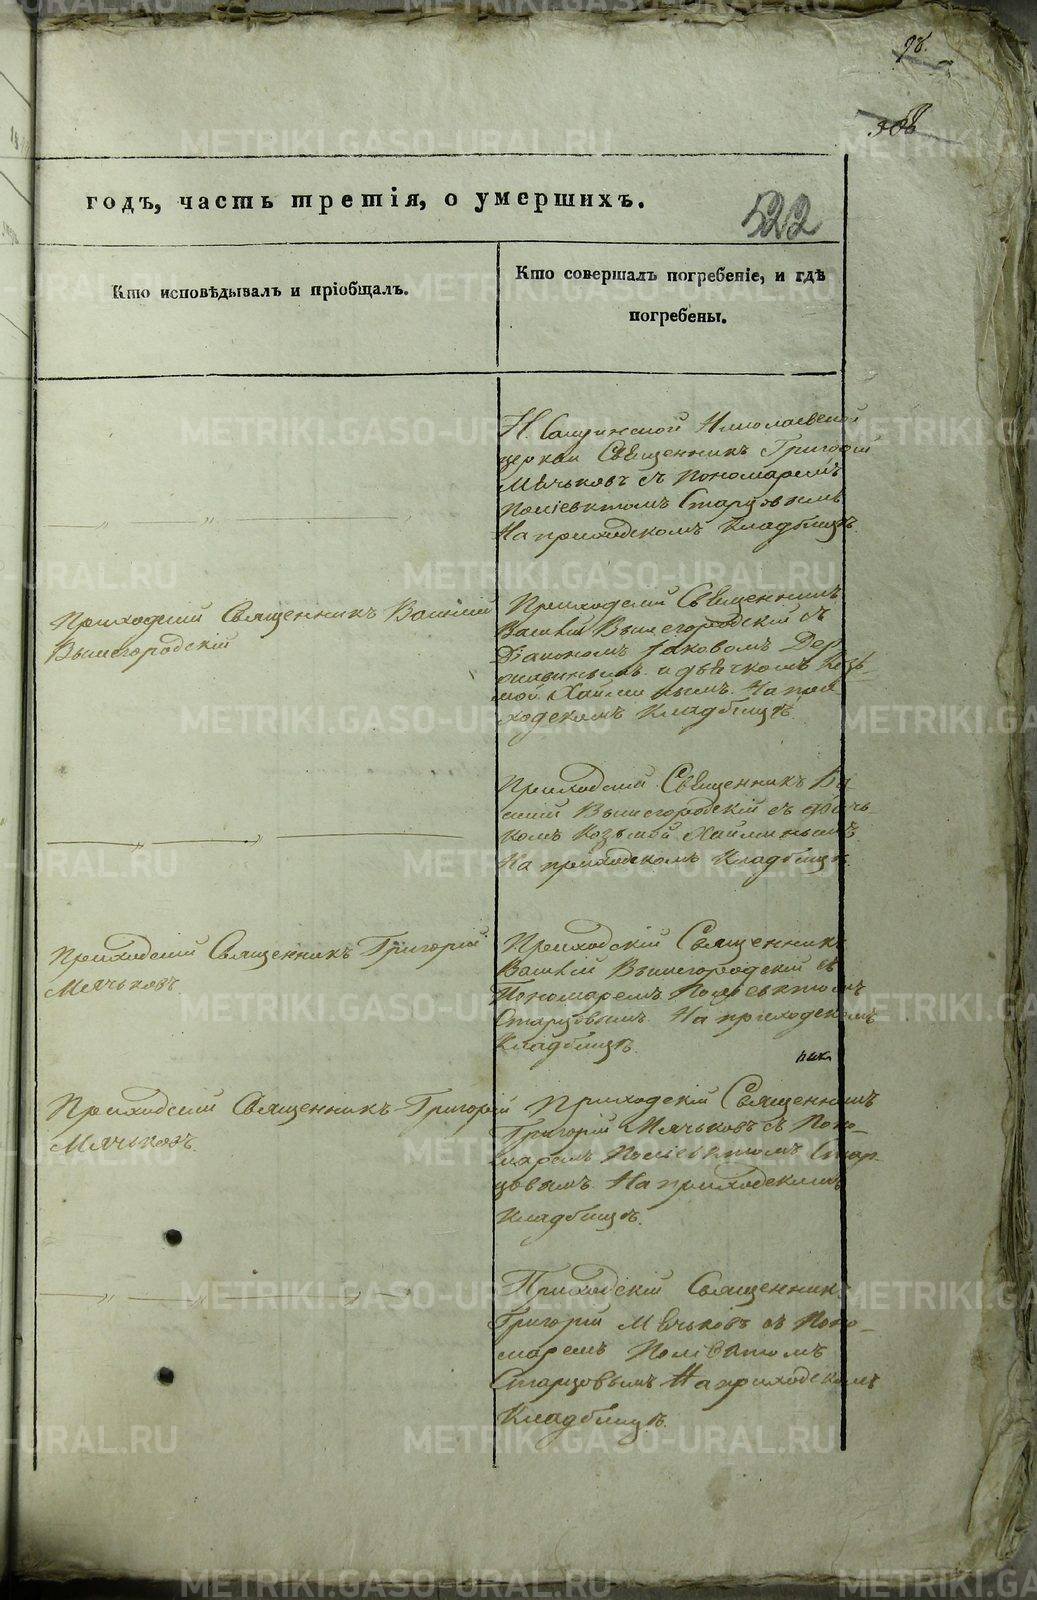 98.
308
годъ, часть третія, о умершихъ.
522
Кто исповѣдывалъ и пріобщалъ.
Кто совершалъ погребеніе, и гдѣ
погребены.
Н. Николаевской
церкви Священникъ Григорій
Мѣчьковъ съ Пономаремъ
Поліевктомъ Старцовымъ
На приходскомъ Кладбищѣ.
Приходскій Священникъ Василій
Вышегородскій
Приходскій Священникъ
Василій Вышегородскій съ
Діакономъ Іаковомъ
и дьячкомъ Козь-
мой Хайминымъ. На при
ходскомъ Кладбищѣ.
Приходскій Священникъ Ва-
силій Вышегородскій съ дьячь-
комъ Козьмой Хайминымъ
На приходскомъ Кладбищѣ.
Приходскій Священникъ Григорій
Мячьковъ.
Приходскій Священникъ
Василій Вышегородскій съ
Пономаремъ Поліевктомъ
Старцовымъ. На приходскомъ
Кладбищѣ.
Приходскій Священникъ Григорій
Мячьковъ.
Приходскій Священникъ
Григорій Мячьковъ съ Поно-
маремъ Поліевктомъ Стар-
цовымъ На приходскомъ
Кладбищѣ.
Приходскій Священник
Григорій Мѣчьковъ съ Поно-
маремъ
Старцовымъ На приходскомъ
Кладбищѣ.
METRIKI.GASO-URAL.RU